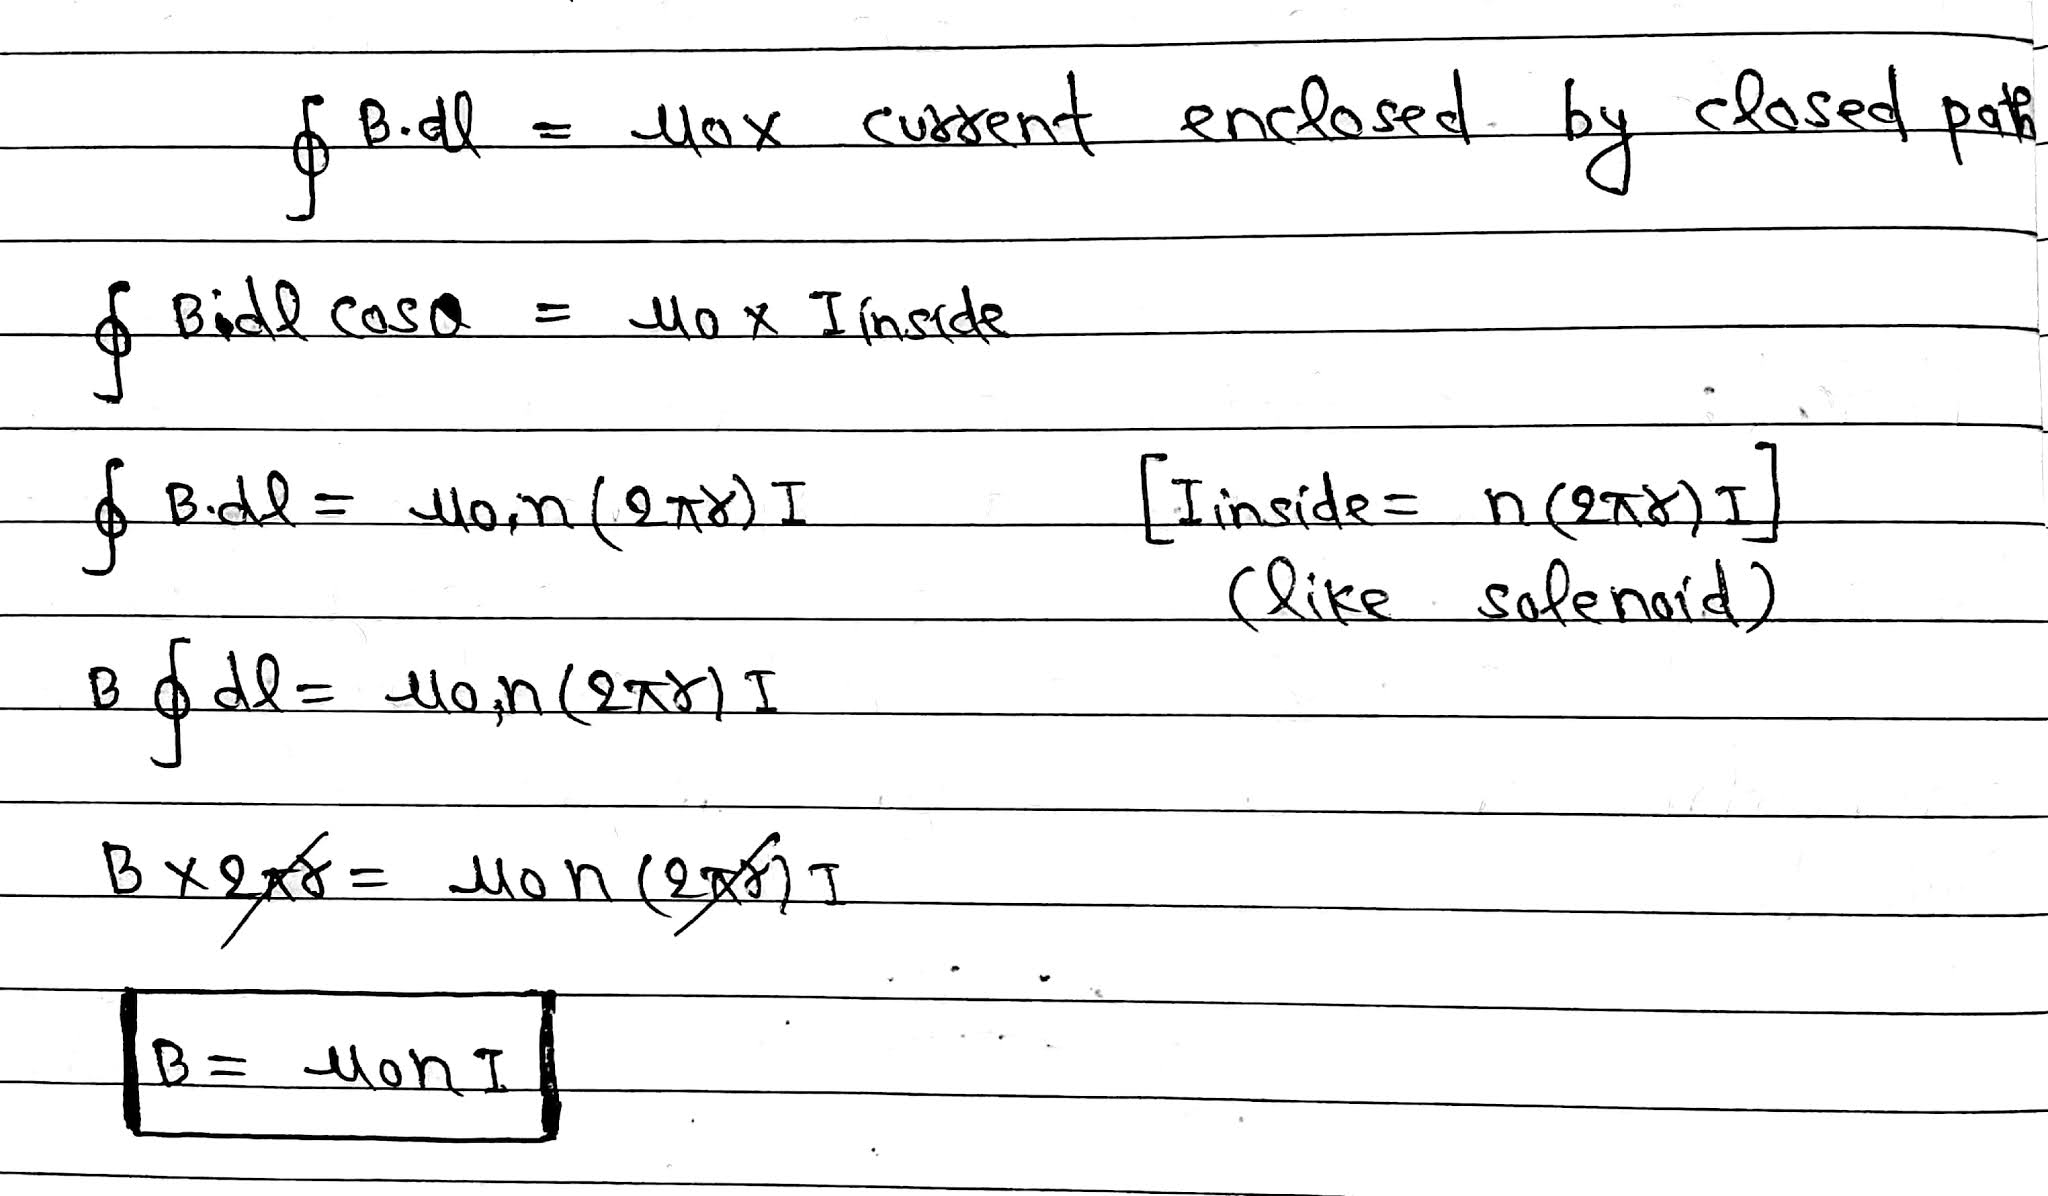 ∮ B.dl = μ0 x current enclosed by closed path
∮ B.dl cosθ = μ0 x I inside
∮ B.dl = μ0,n(2πr)I [I inside = n(2πr)I]
(like solenoid)
B ∮ dl = μ0,n(2πr)I
B x 2πr = μ0n(2πr)I
B = μ0nI